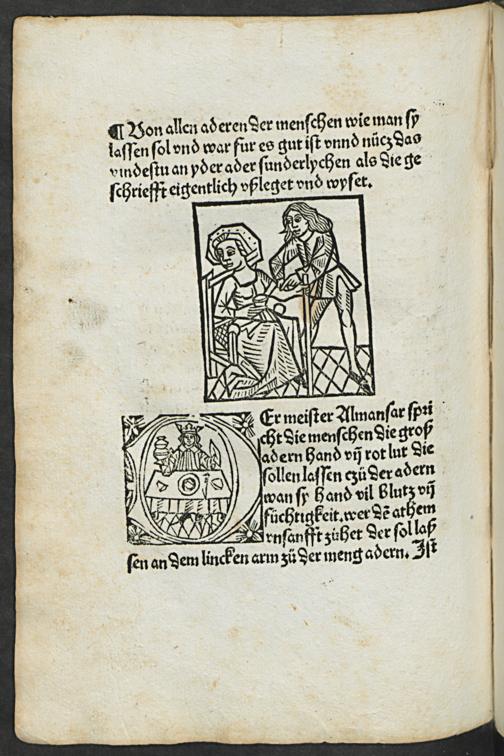 ¶ Von allen aderen der menschen wie man sy
lassen sol vnd war für es gut ist vnnd nücz das
vindestu an yder ader sunderlychen als die ge
schriefft eigentlich vßleget vnd wyset.
Er meister Almansar spri
cht die menschen die groß
adern hand vñ rot lut die
sollen lassen czů der adern
wan sy hand vil Blutz vñ
füchtigkeit. wer dē athem
vnsanfft zühet der sol laß
sen an dem lincken arm zů der meng adern. Ist